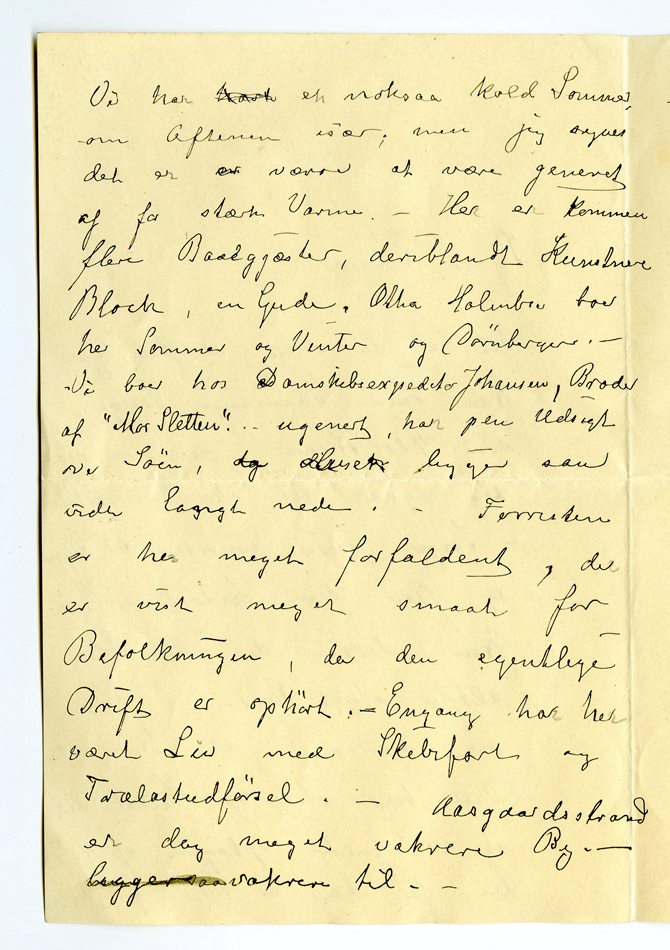 Vi har havt en noksaa kold Sommer,
om Aftenen især, men jeg synes
det er er værre at være generet
af for stærk Varme. – Her er kommen
flere Badegjæster, deriblandt Kunstnere
Block, en Gude. Otha Holmboe boer
her Sommer og Vinter og Dørnberger. –
Vi boer hos Damskibsexpeditør Johansen, Broder
af "Mor Sletten". – ugenert, har pen Udsigt
over Søen, da Huset ligger saa
vidr langt nede. – Forresten
er her meget forfaldent, der
er vist meget smaat for
Befolkningen, da den egentlige
Drift er ophört. – Engang har her
været Liv med Skibsfart og
Trælastudförsel. – Aasgaardsstrand
er dog meget vakrere By. –
ligger saa vakrere til. –